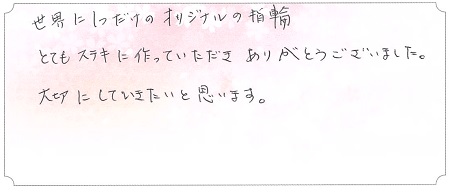 世界に1つだけのオリジナルの指輪
とてもステキに作っていただきありがとうございました。
大切にしていきたいと思います。